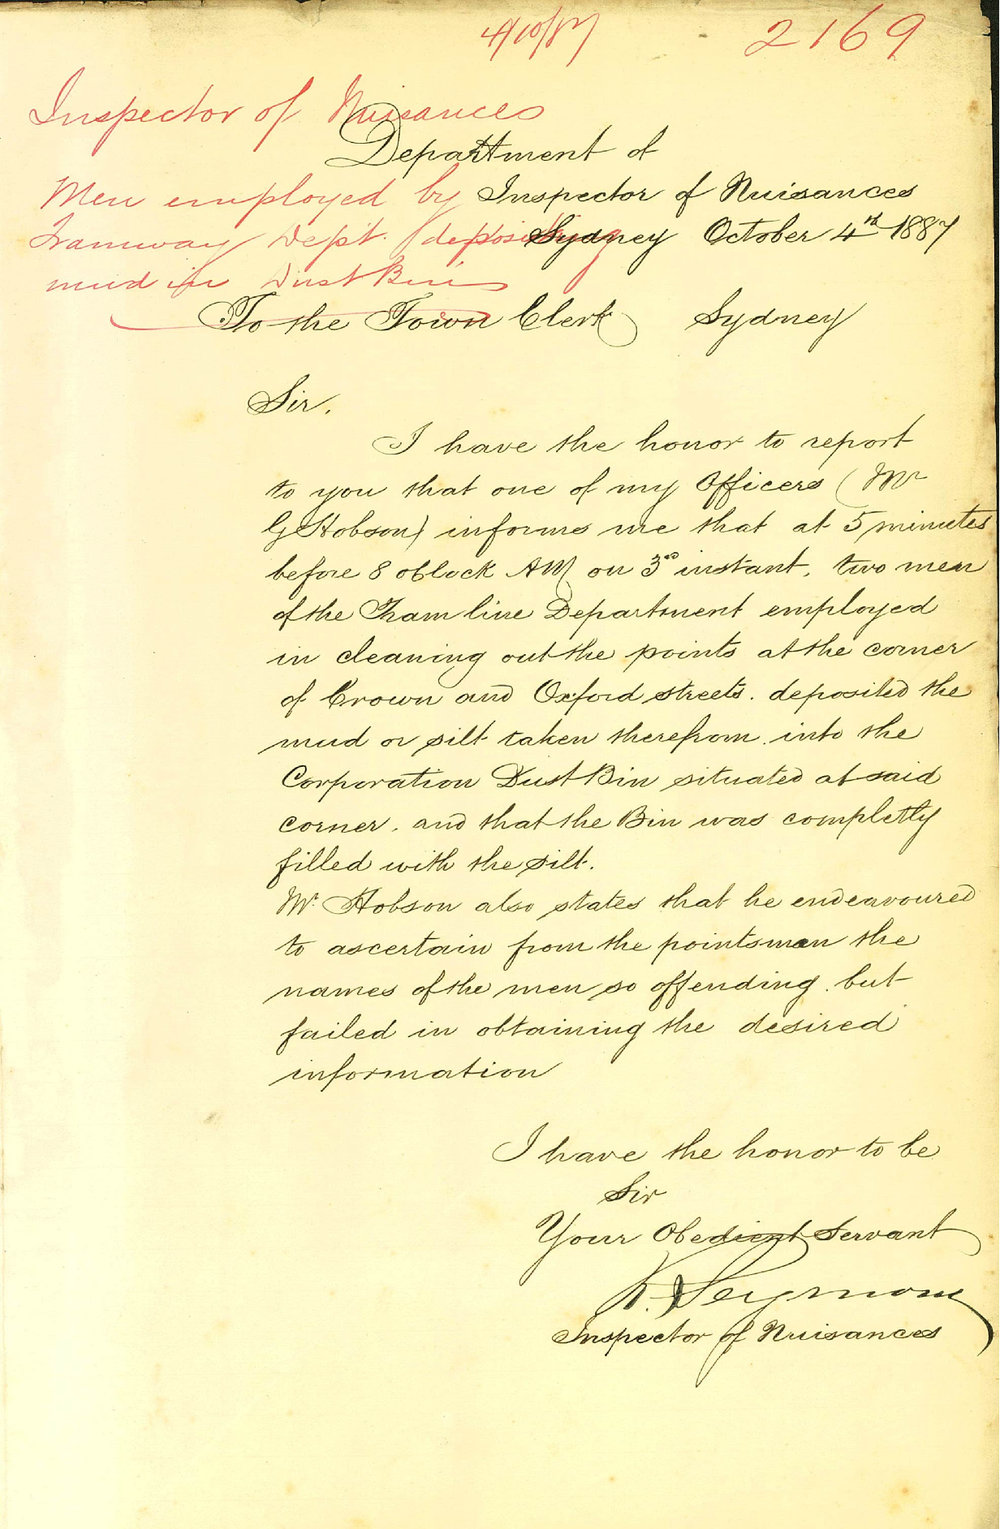 4/10/87
2169
Inspector of Nuisances
Men employed by
Tramway Dept. depositing
mud in Dust Bin
Department of
Inspector of Nuisances
Sydney October 4th 1887
To the Town Clerk Sydney
Sir.
I have the honor to report
to you that one of my Officers (Mr
G Hobson) informs me that at 5 minutes
before 8 oClock AM on 3rd instant, two men
of the Tram line Department employed
in cleaning out the points at the corner
of Crown and Oxford streets. deposited the
mud or silt taken therefrom. into the
Corporation Dust Bin situated at said
corner. and that the Bin was completly
filled with the silt.
Mr. Hobson also states that he endeavoured
to ascertain from the pointsman the
names of the men so offending. but
failed in obtaining the desired
information
I have the honor to be
Sir
Your Obedient Servant
Seymour
Inspector of Nuisances